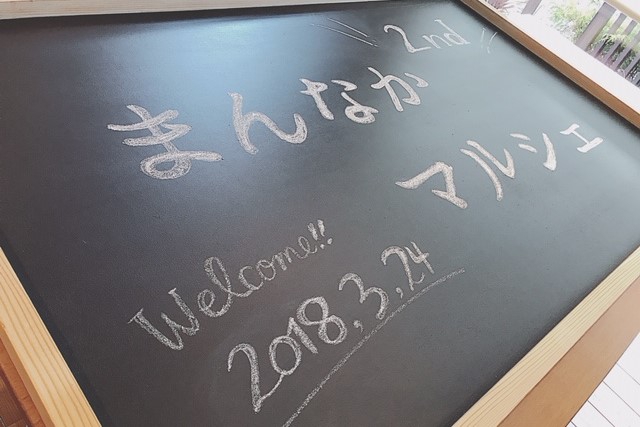 2nd
まんなか
マルシェ
Welcome!!
2018,3,24